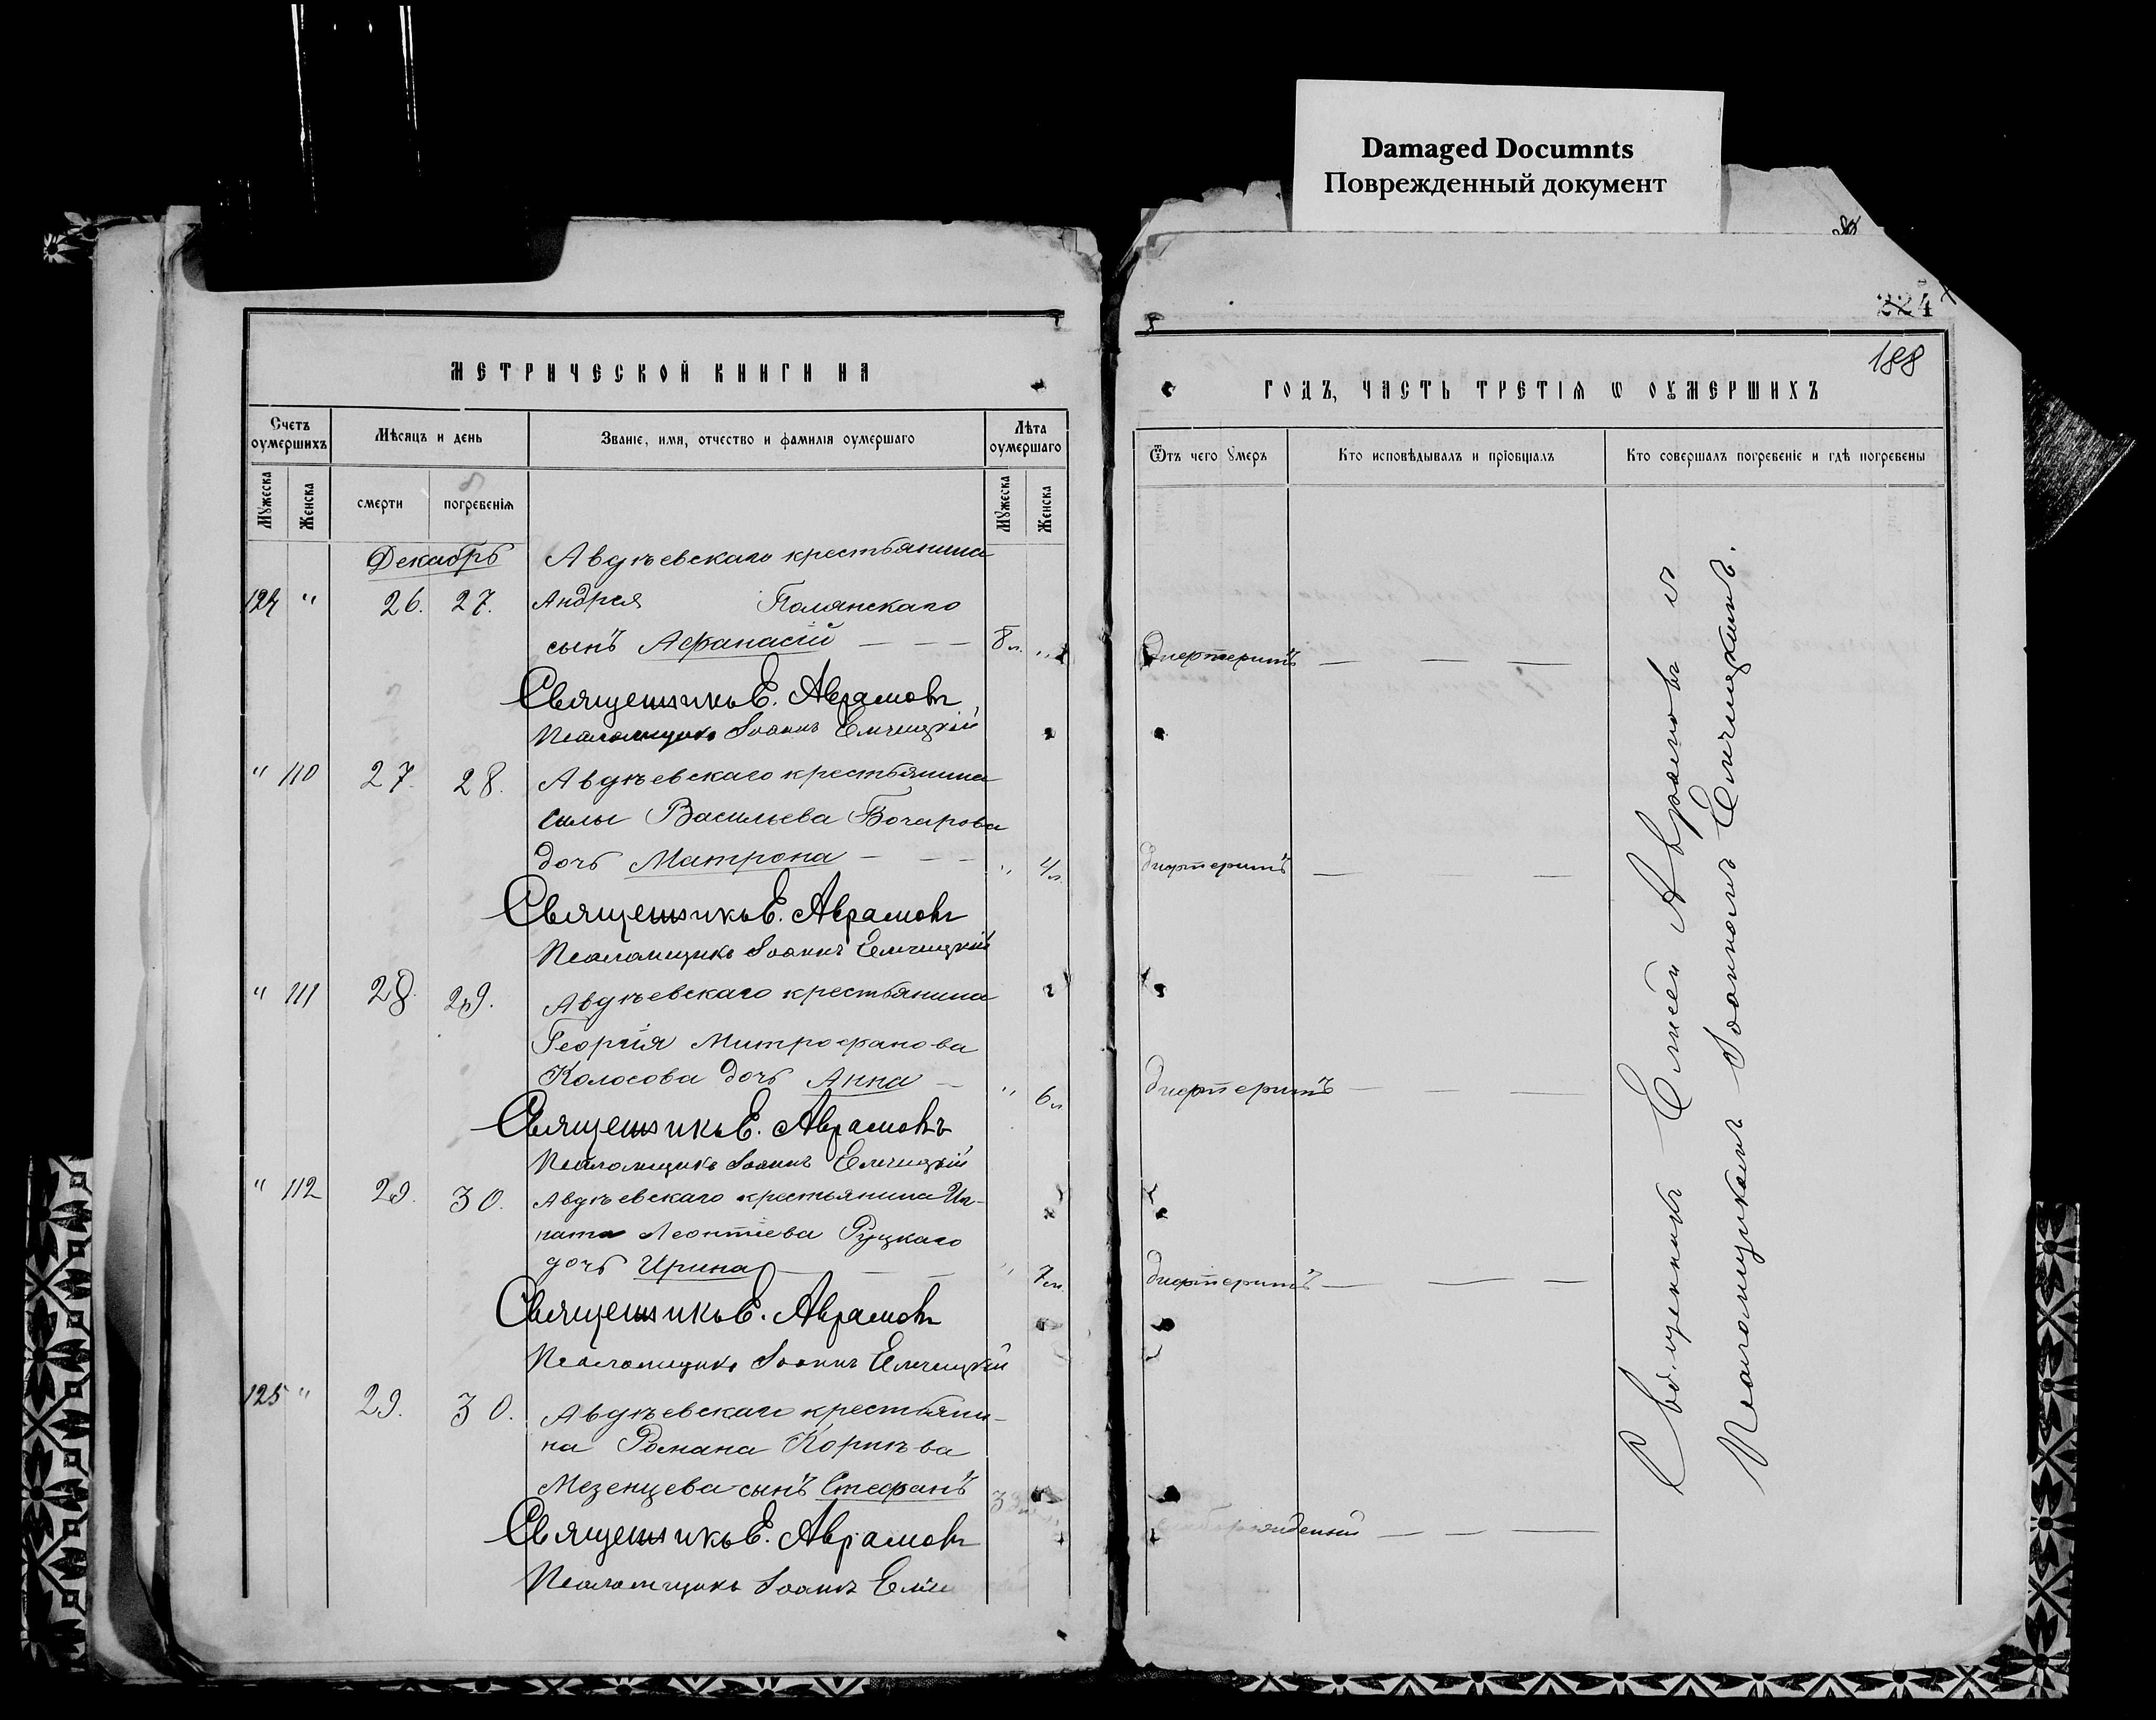 Damaged Documnts
Поврежденный документ
224
188
МЕТРИЧЕСКОЙ КНИГИ НА
ГОДЪ, ЧАСТЬ ТРЕТІѦ Ѡ ОУМЕРШИХЪ
Счетъ оумершихъ
Мѣсяцъ и день
Званіе, имя, отчество и фамилія оумершаго
Лѣта оумершаго
Ѿтъ чего умеръ
Кто исповѣдывалъ и пріобщалъ
Кто совершалъ погребеніе и гдѣ погребены
Мужеска
Женска
смерти
погребенія
Мужеска
Женска
Декабрь
Авдѣевскаго крестьянина
124 " 26. 27. Андрея Полянскаго
сынъ Афанасій — — — 8 л. " дифтеритъ — — —
Священникъ Е. Аврамовъ
Псаломщикъ Іоаннъ Елчицкій
" 110 27. 28. Авдѣевскаго крестьянина
Силы Васильева Бочарова
дочь Матрона — — — " 4 л. дифтеритъ — — —
Священникъ Е. Аврамовъ
Псаломщикъ Іоаннъ Елчицкій
" 111 28. 29. Авдѣевскаго крестьянина
Георгія Митрофанова
Колосова дочь Анна — " 6 л дифтеритъ — — —
Священникъ Е. Аврамовъ
Псаломщикъ Іоаннъ Елчицкій
" 112 29. 30. Авдѣевскаго крестьянина Иг-
ната Леонтіева Руцкаго
дочь Ирина — — — " 7 л дифтеритъ — — —
Священникъ Е. Аврамовъ
Псаломщикъ Іоаннъ Елчицкій
125 " 29. 30. Авдѣевскаго крестьяни-
на Романа Корнѣва
Мезенцева сынъ Стефанъ
— — —
Священникъ Е. Аврамовъ
Псаломщикъ Іоаннъ
Священникъ Елисей Аврамовъ съ
Псаломщикомъ Іоанномъ Елчицкимъ.